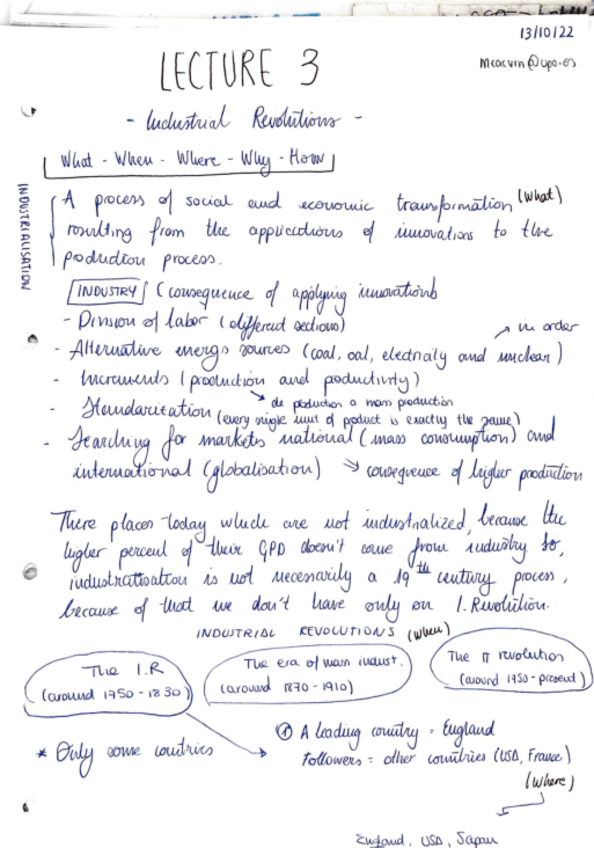 13/10/22
LECTURE 3
mcarvin@upo.es
- Industrial Revolutions -
What - When - Where - Why - How
INDUSTRIALISATION
A process of social and economic transformation (what)
resulting from the applications of innovations to the
production process.
INDUSTRY (consequence of applying innovations
- Division of labor (different sections)
→ in order
- Alternative energy sources (coal, oal, electricity and nuclear)
- Increments (production and productivity)
→ de production a mass production
- Standaritation (every single unit of product is exactly the same)
- Searching for markets national (mass consumption) and
international (globalisation) ⇒ consequence of higher production
There places today which are not industrialized, because the
higher percent of their GPD doesn't come from industry so,
industrialisation is not necessarily a 19th century process,
because of that we don't have only on I. Revolution.
INDUSTRIAL REVOLUTIONS (when)
The I.R
(around 1750 - 1830)
The era of mass indust.
(around 1870 - 1910)
The IT revolution
(around 1950 - present)
* Only some countries
① A leading country = England
Followers = other countries (USA, France)
(Where)
England, USA, Japan